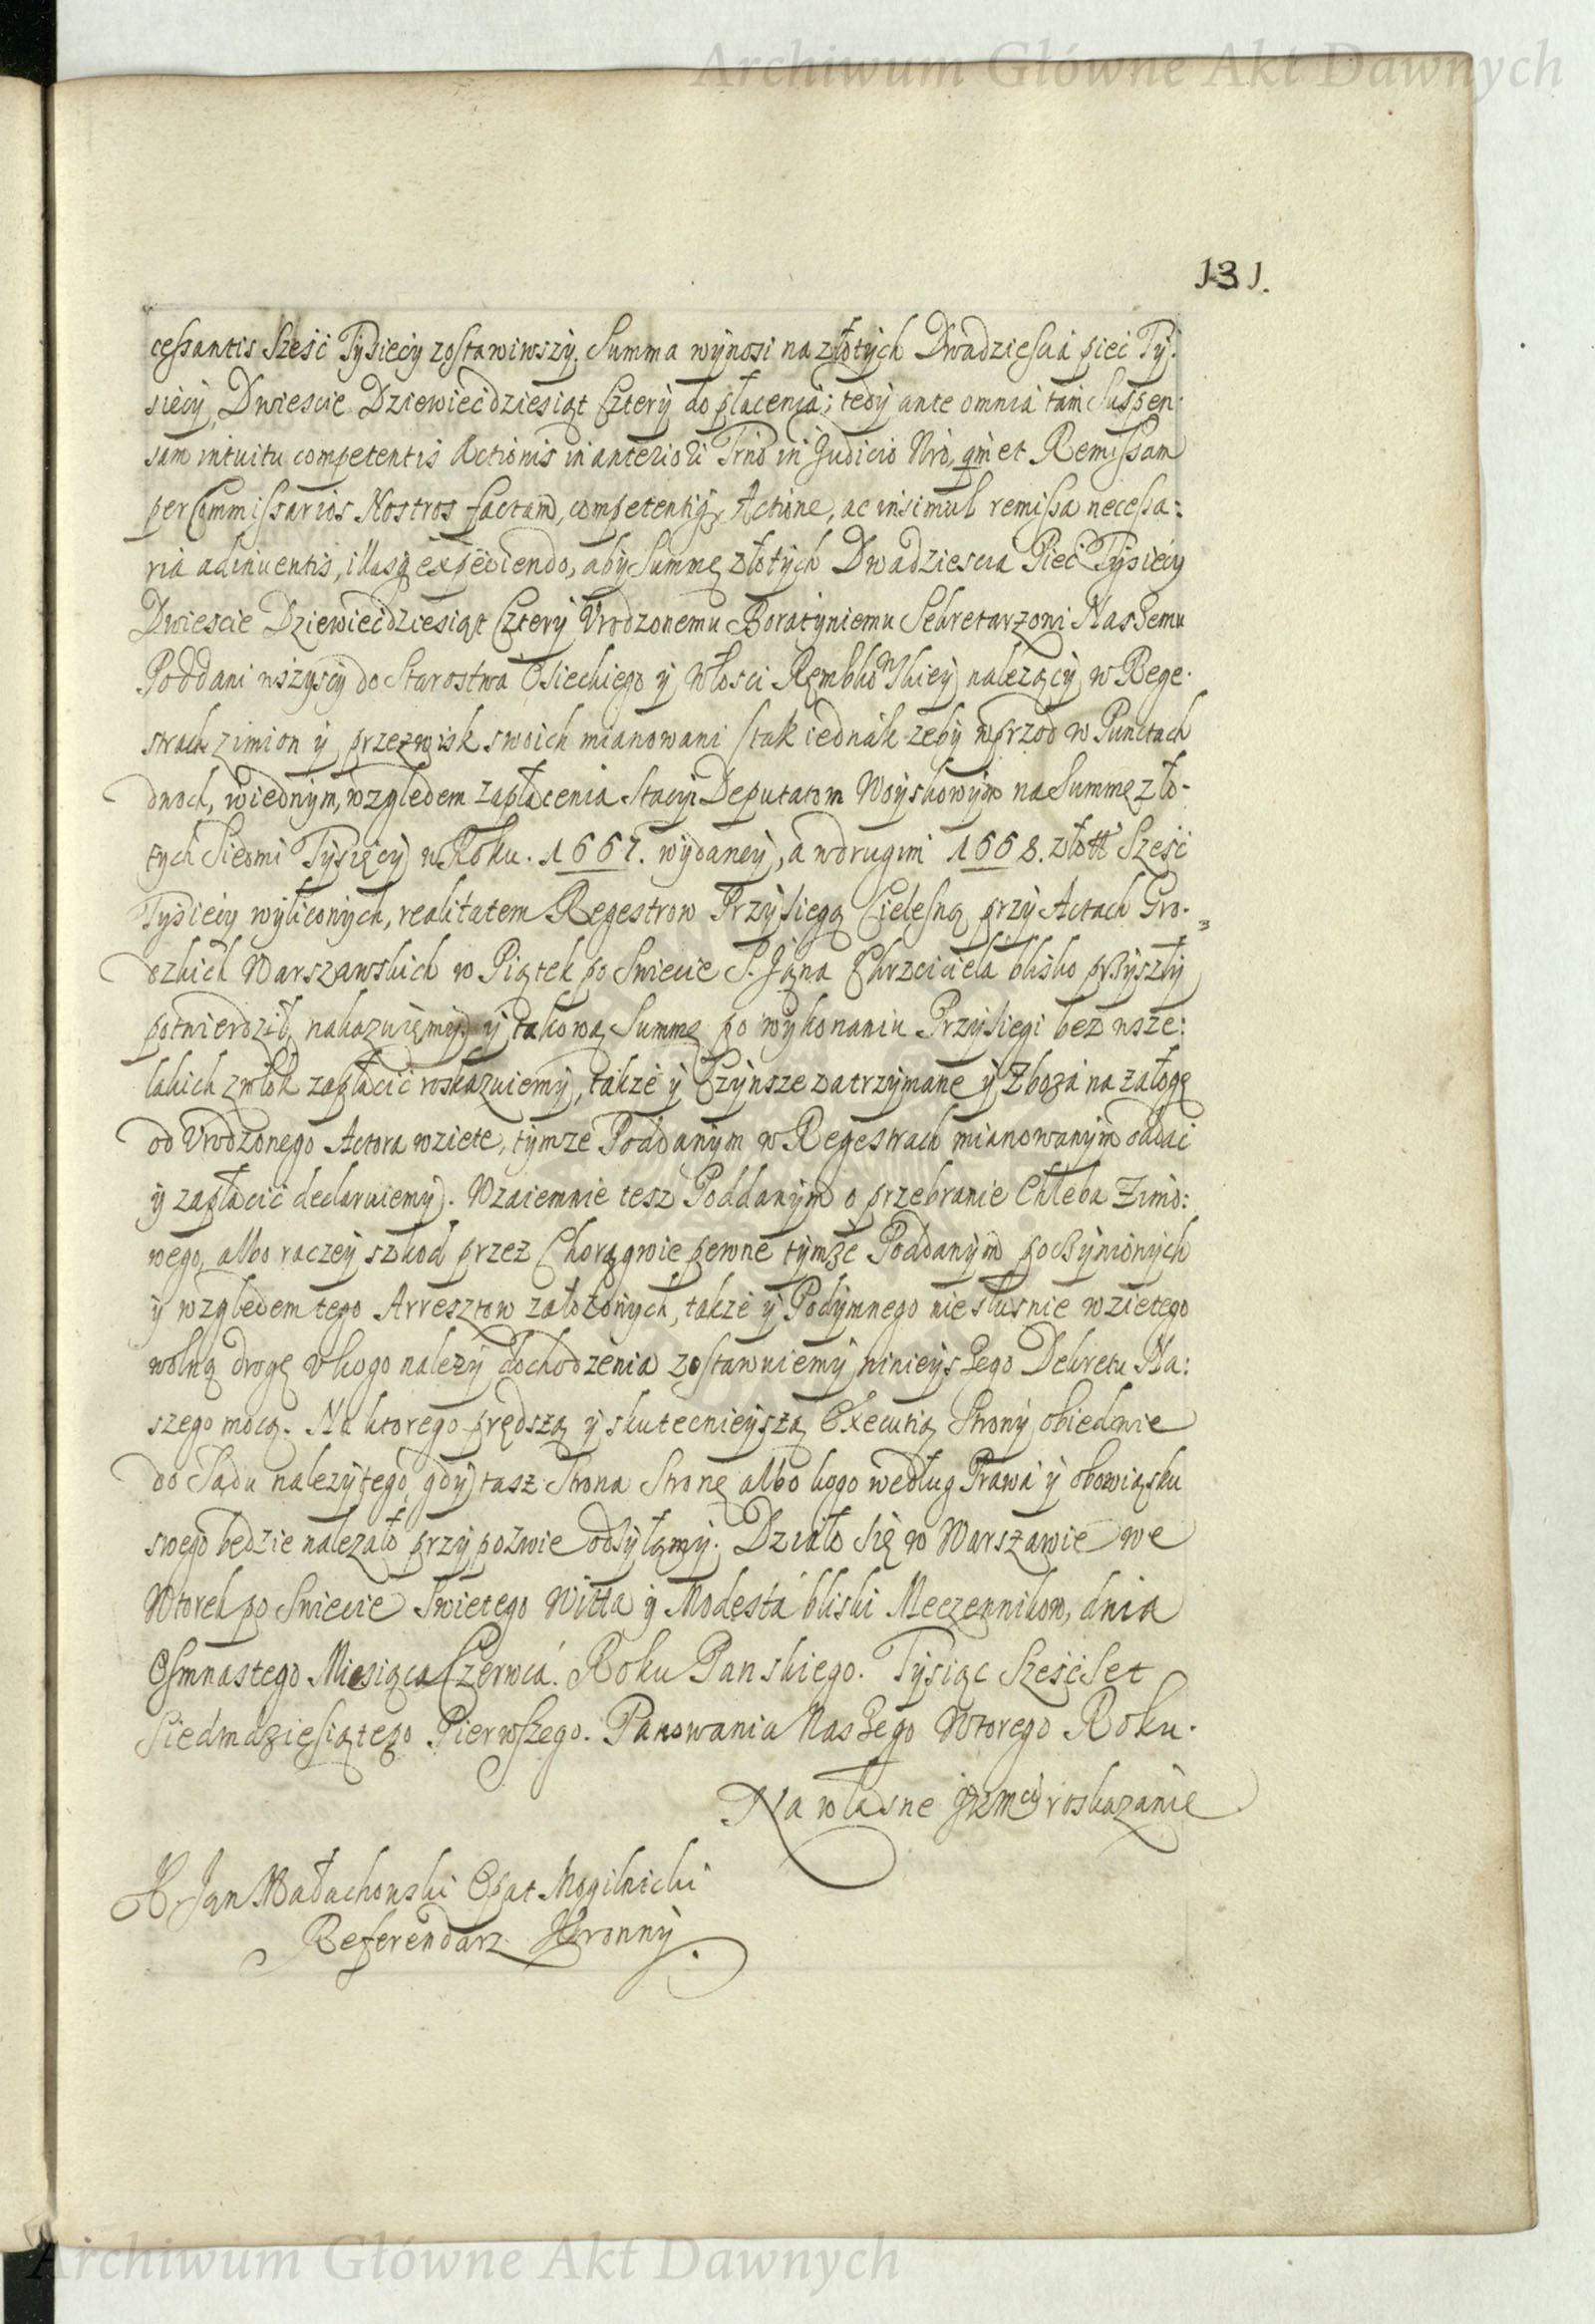 Archiwum Główne Akt Dawnych
131.
cessantis Sześć Tysiecy zostawiwszy. Summa wynosi na złotych Dwadziescia pieć Ty-
siecy, Dwiescie Dziewiećdziesiąt Cztery do płacenia; tedy ante omnia tam Suspen-
sam intuitu competentis Actionis in anteriori Trno in Judicio Nro, qm et Remissam
per Commissarios Nostros factam, competentiq Actione, ac insimul remissa necessa:
ria adinuentis, illasq expediendo, aby Summę złotych Dwadziescia Pieć Tysiecy
Dwiescie Dziewiećdziesiąt Cztery Vrodzonemu Boratyniemu Sekretarzowi Naszemu
Poddani wszyscy do Starostwa Osieckiego y Włosci Rembkowskiey nalezący w Rege-
strach z imion y przezwisk swoich mianowani /tak iednak zeby wprzod w Punctach
dwoch, wiednym, względem zapłacenia Stacyi Deputatom Woyskowym na Summę zło-
tych Siedmi Tysięcy w Roku. 1667. wydaney, a wdrugim 1668. złott Sześć
Tysiecy wyliconych, realitatem Regestrow Przysiegą Cielesną przy Actach Gro-
dzkich Warszawskich w Piątek po Swiecie S. Jana Chrzciciela blisko przyszły
potwierdzili, nakazuięmy y takową Summę po wykonaniu Przysiegi bez wsze:
lakich zwłok zapłacić roskazuiemy, także y Czynsze zatrzymane y Zboża na załogę
od Vrodzonego Actora wziete, tymze Poddanym w Regestrach mianowanym oddać
y zapłacić declaruiemy. Wzaiemnie tesz Poddanym o przebranie Chleba Zimo:
wego, albo raczey szkod przez Chorągwie pewne tymże Poddanym poczynionych
y względem tego Arresztow załozonych, także y Podymnego niesłusnie wzietego
wolną drogę v kogo nalezy dochodzenia zostawuiemy ninieyszego Dekretu Na:
szego mocą. Na ktorego prędszą y skutecnieyszą Executią Strony obiedwie
do Sądu nalezytego, gdy tasz Strona Stronę albo kogo według Prawa y obowiązku
swego bedzie nalezało przypozwie odsyłamy. Działo się w Warszawie we
Wtorek po Swiecie Swietego Witta y Modesta bliski Meczennikow, dnia
Osmnastego Miesiąca Czerwca. Roku Panskiego. Tysiąc Sześćset
Siedmdziesiątego Pierwszego. Panowania Naszego Wtorego Roku.
Na własne JKMci roskazanie
X Jan Małachowski Opat Mogilnicki
Referendarz Kronny.
Archiwum Główne Akt Dawnych